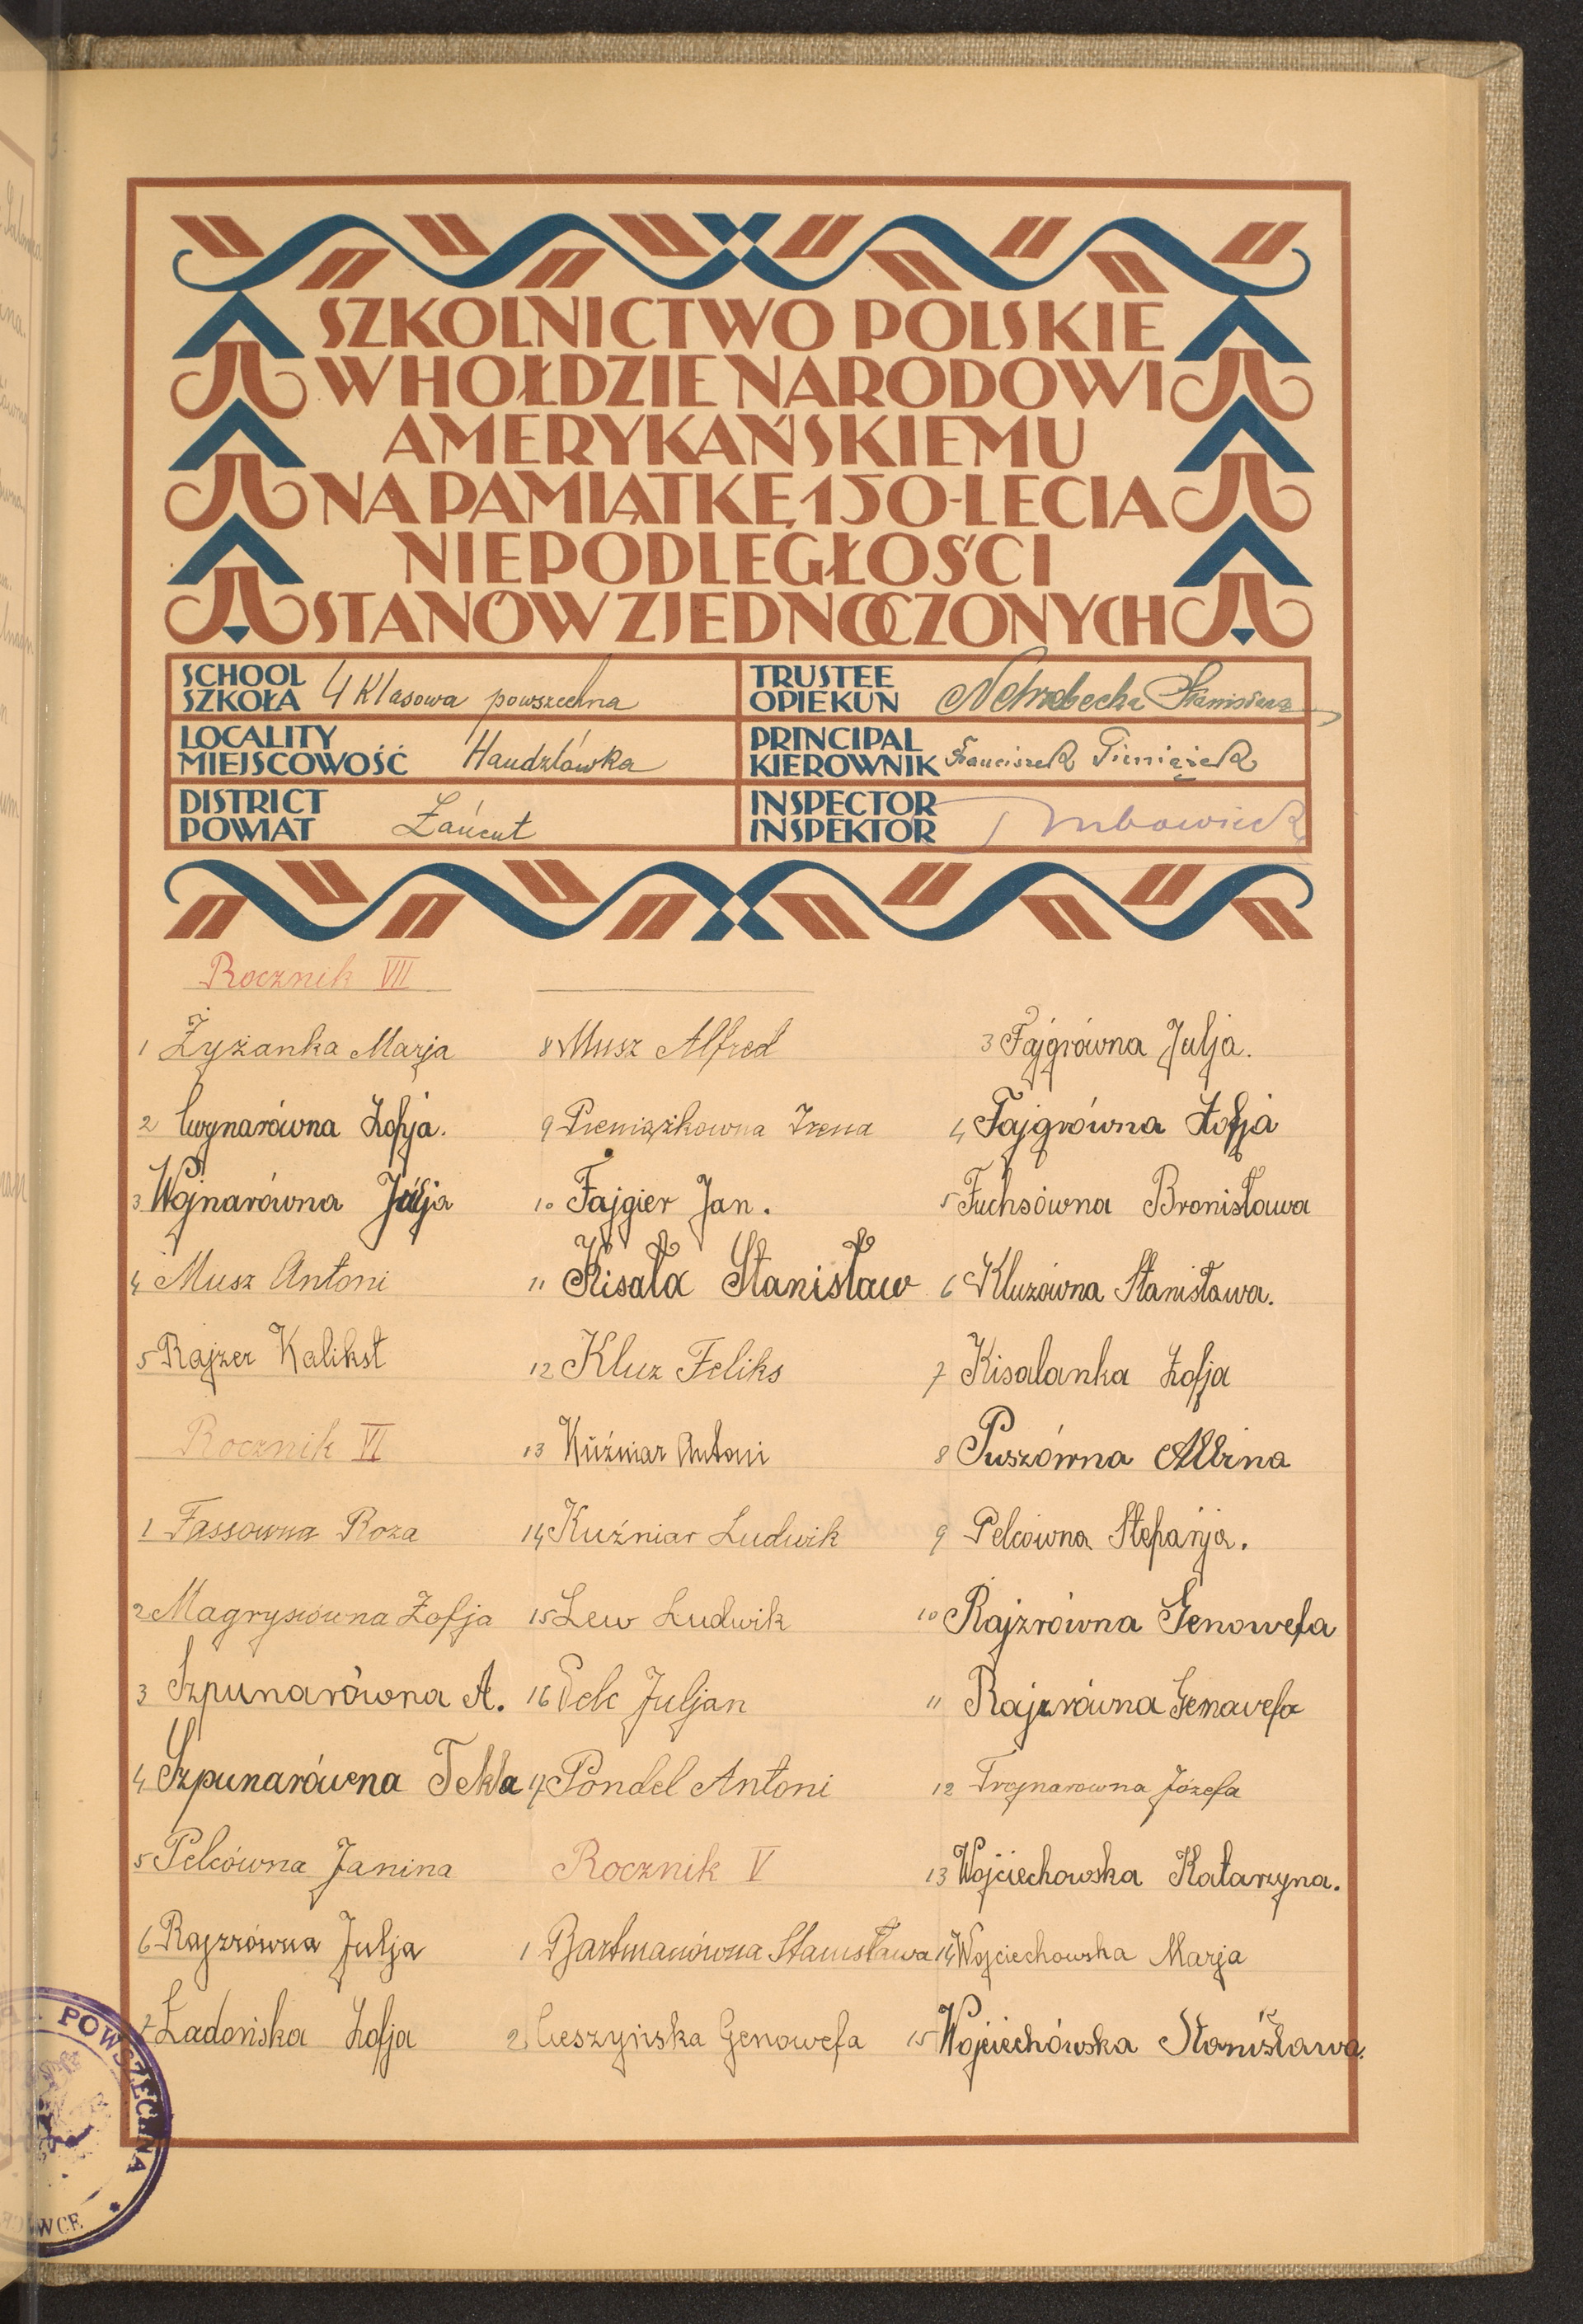 SZKOLNICTWO POLSKIE
W HOŁDZIE NARODOWI
AMERYKAŃSKIEMU
NA PAMIĄTKĘ 150-LECIA
NIEPODLEGŁOŚCI
STANÓW ZJEDNOCZONYCH
SCHOOL
SZKOŁA 4 Klasowa powszechna
TRUSTEE
OPIEKUN
LOCALITY
MIEJSCOWOŚĆ Handzlówka
PRINCIPAL
KIEROWNIK Franciszek Pieniążek
DISTRICT
POWIAT Łańcut
INSPECTOR
INSPEKTOR
Rocznik VII
1 Żyżanka Marja
2 Cwynarówna Zofja.
3 Wojnarówna Julja
4 Musz Antoni
5 Rajzer Kalikst
Rocznik VI
1 Fassowna Roza
2 Magrysówna Zofja
3 Szpunarówna A.
4 Szpunarówna Tekla
5 Pelcówna Janina
6 Rajzrówna Julja
7 Ładońska Zofja
8 Musz Alfred
9 Pieniążkowna Irena
10 Fajgier Jan.
11 Kisała Stanisław
12 Kluz Feliks
13 Kuźniar Antoni
14 Kuźniar Ludwik
15 Lew Ludwik
16 Pelc Juljan
17 Pondel Antoni
Rocznik V
1 Bartmanówna Stanisława
2 Cieszyńska Genowefa
3 Fajgrówna Julja.
4 Fajgrówna Zofja
5 Fuchsówna Bronisława
6 Kluzówna Stanisława.
7 Kisalanka Zofja
8 Puszówna Albina
9 Pelcówna Stefanja.
10 Rajzrówna Genowefa
11 Rajzrówna Genowefa
12 Trojnarowna Józefa
13 Wojciechowska Katarzyna.
14 Wojciechowska Marja
15 Wojciechówska Stanisława.
POWSZECHNA